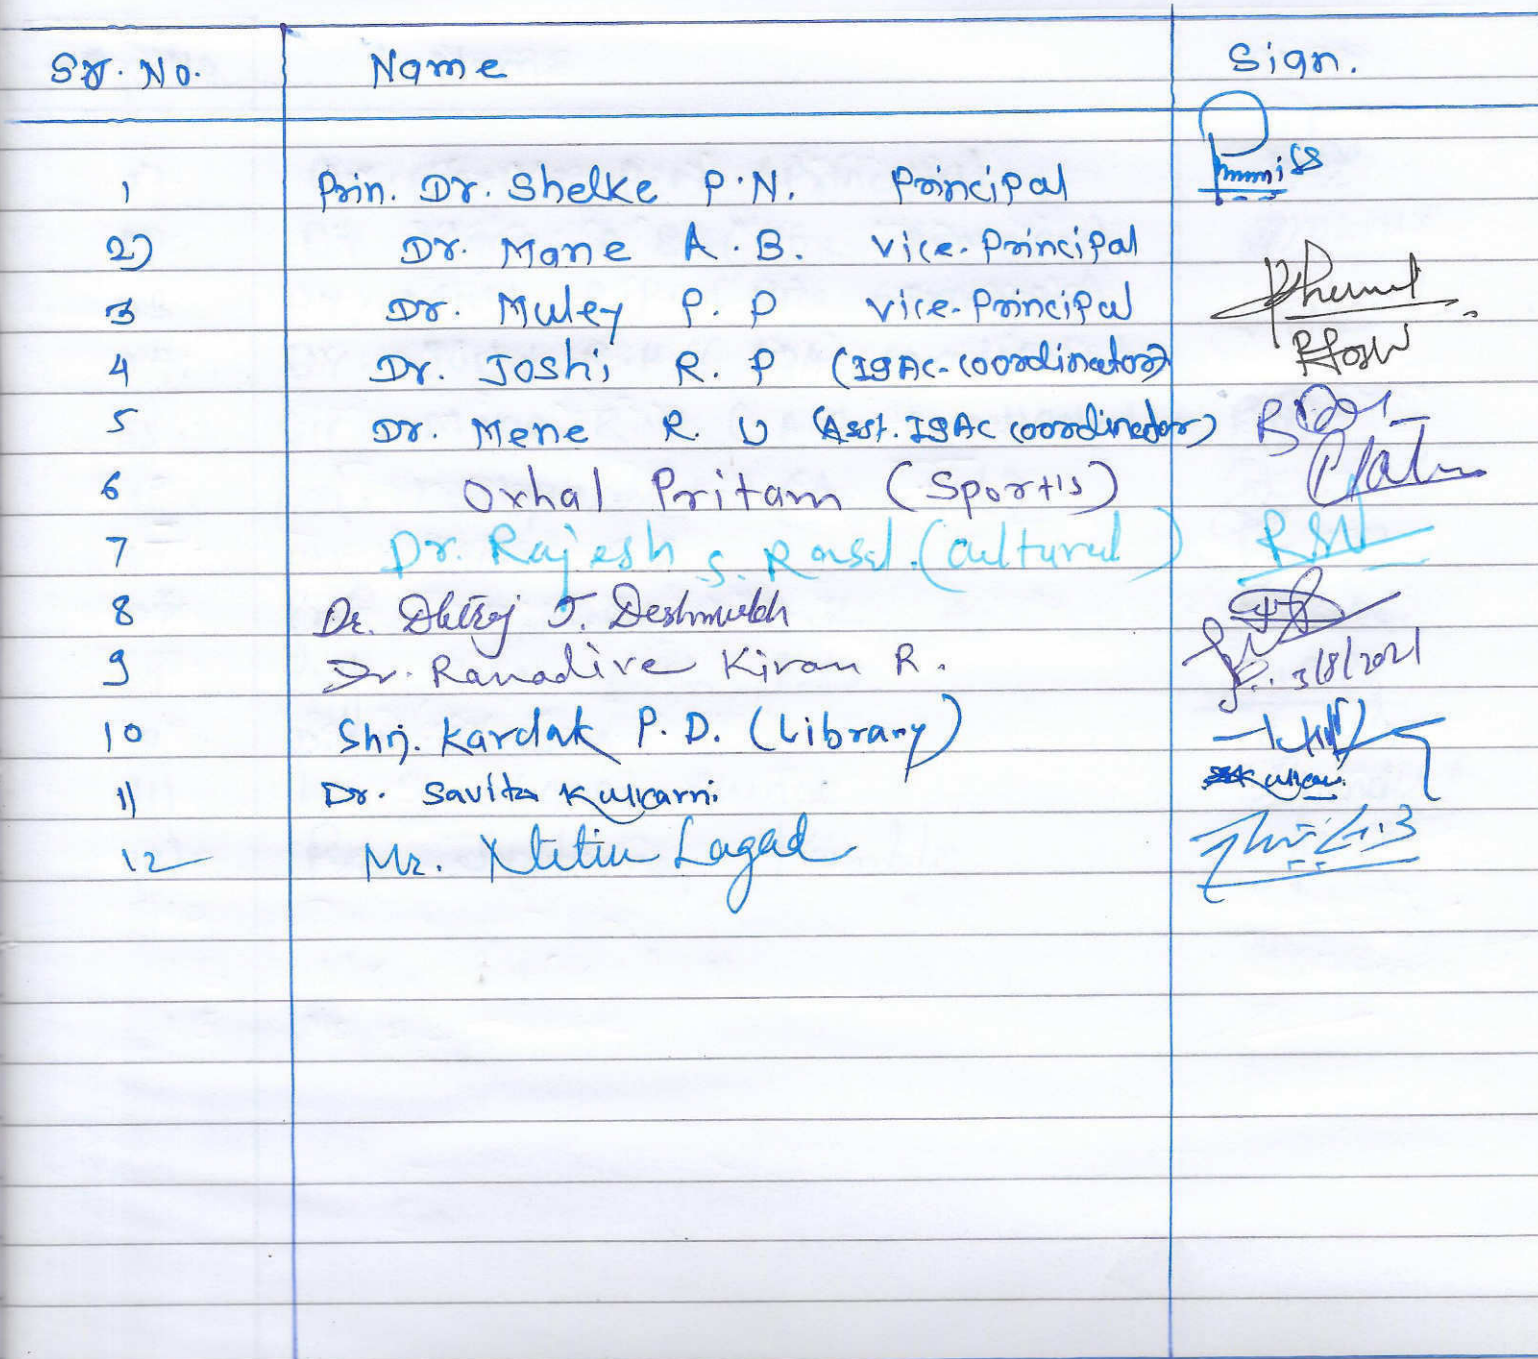 Sr. No. Name Sign.
1 Prin. Dr. Shelke P.N. Principal
2) Dr. Mane A.B. Vice-Principal
3 Dr. Muley P.P Vice-Principal
4 Dr. Joshi R.P (IQAC-coordinator)
5 Dr. Mene R.U (Asst. IQAC coordinator)
6 Oxhal Pritam (Sports)
7 Dr. Rajesh S. Rasal. (Cultural)
8 Dr. Dhiraj J. Deshmukh
9 Dr. Ranadive Kiran R. 3/8/2021
10 Shri. Kardak P.D. (Library)
11 Dr. Savita Kulkarni
12 Mr. Nitin Lagad